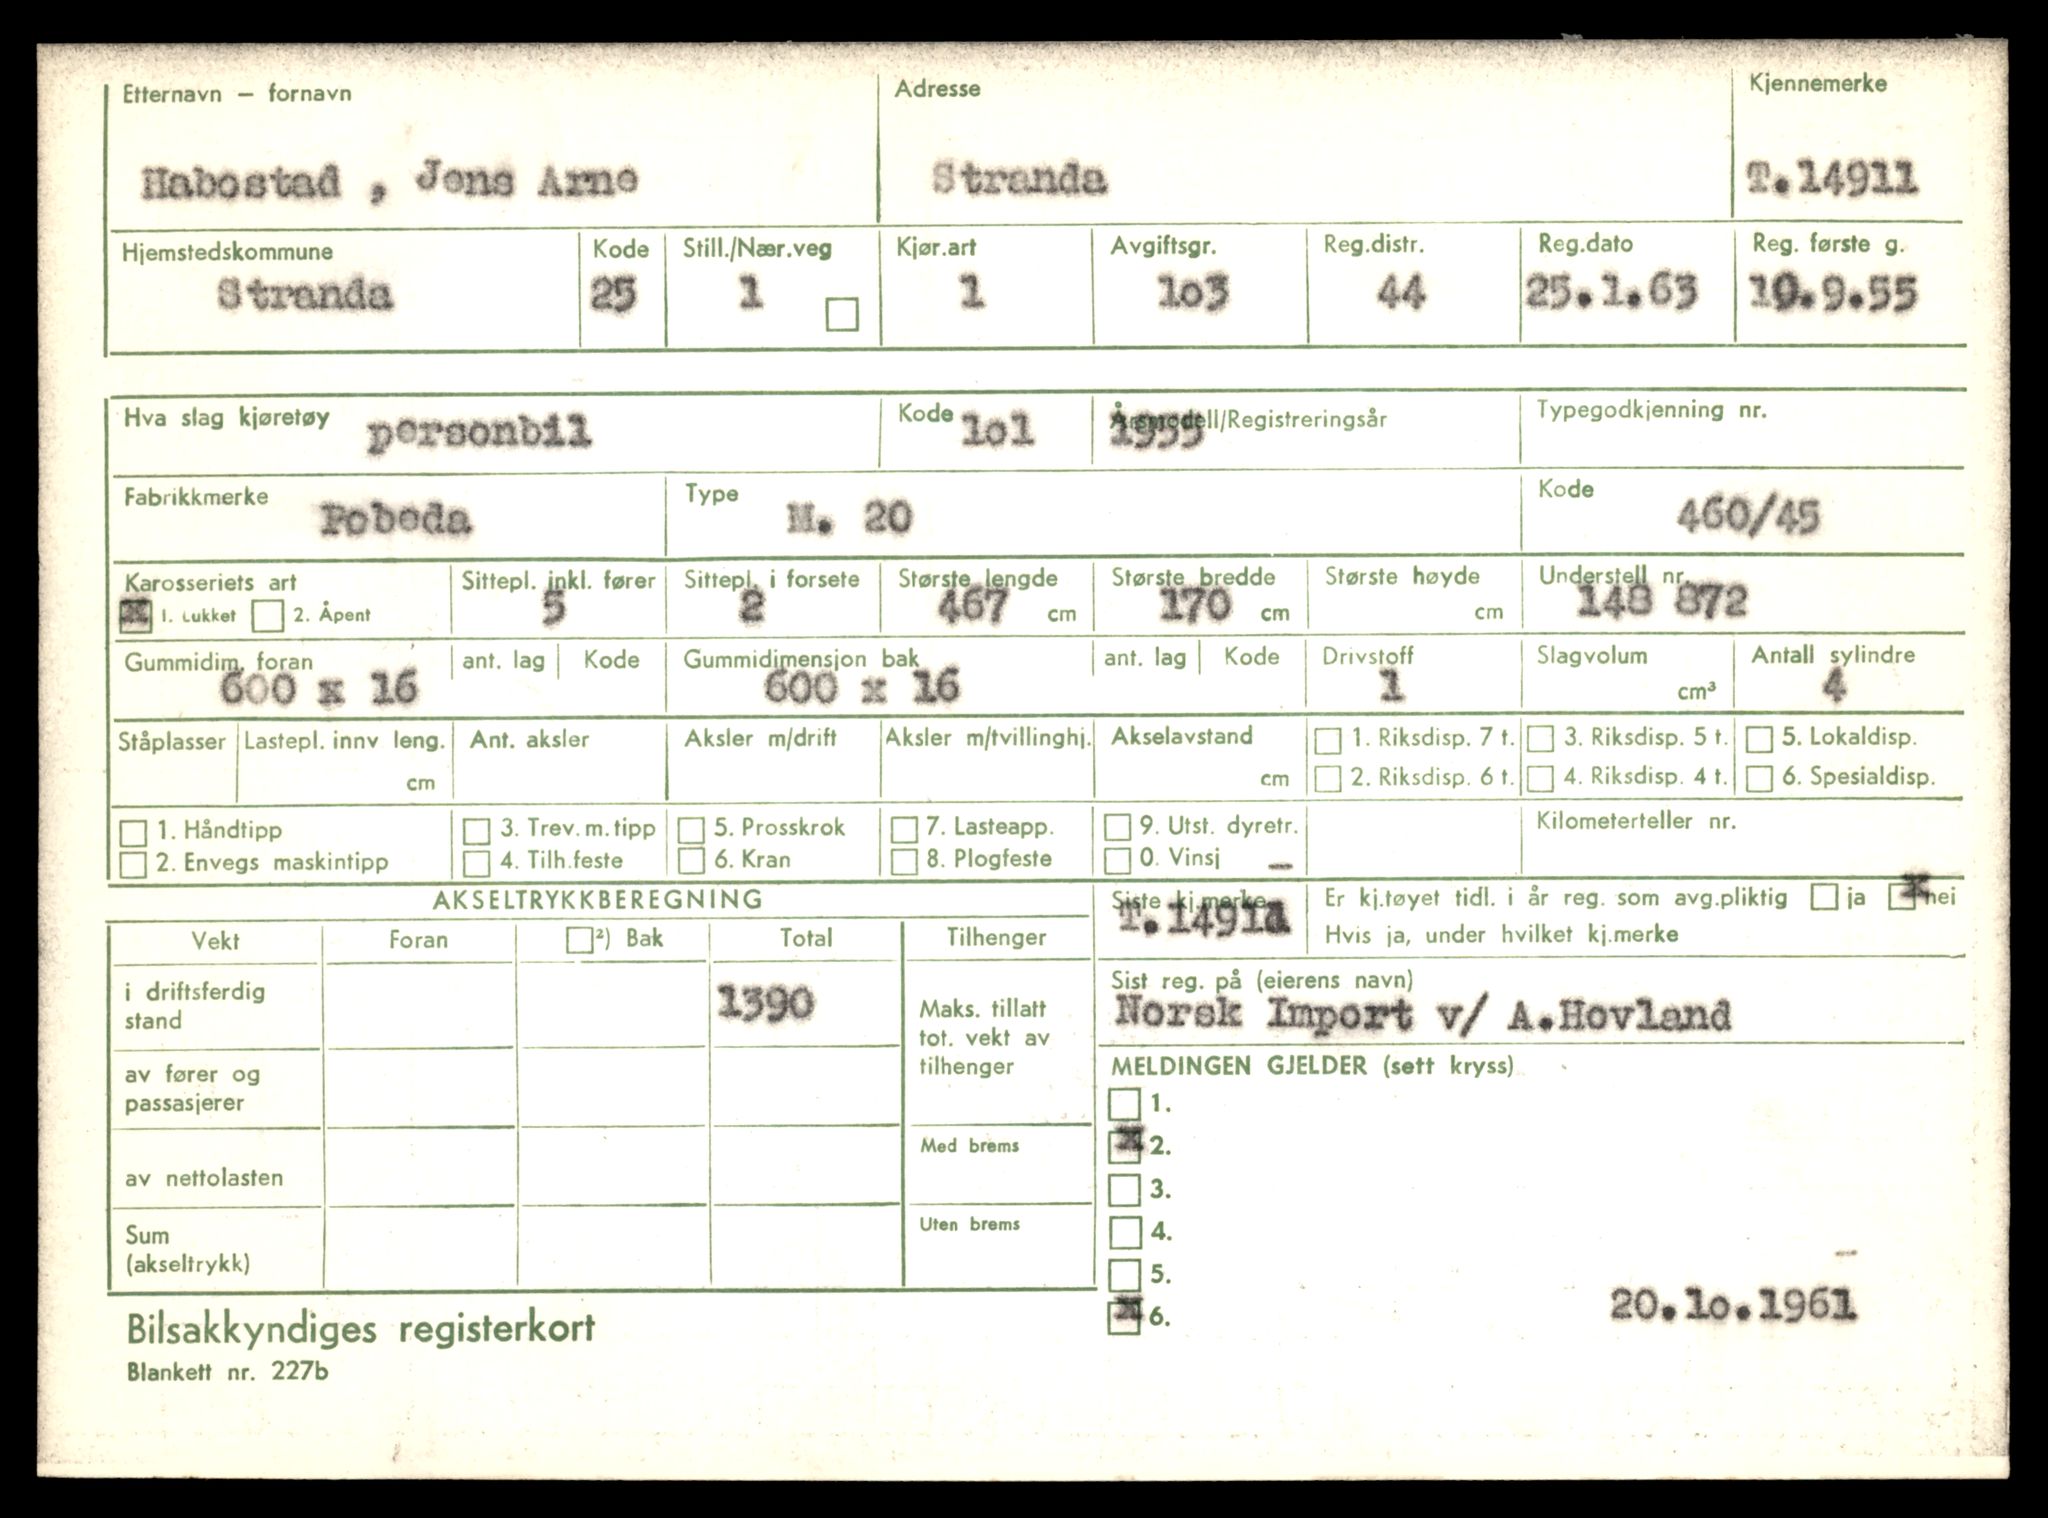 Etternavn – fornavn Adresse Kjennemerke
Habostad , Jens Arne Stranda T.14911
Hjemstedskommune Kode Still./Nær.veg Kjør.art Avgiftsgr. Reg.distr. Reg.dato Reg. første g.
Stranda 25 1 1 1o3 44 25.1.63 10.9.55
Hva slag kjøretøy personbil Kode 1o1 Årsmodell/Registreringsår 1955 Typegodkjenning nr.
Fabrikkmerke Pobeda Type M. 20 Kode 460/45
Karosseriets art Sittepl. inkl. fører Sittepl. i forsete Største lengde Største bredde Største høyde Understell nr.
x 1. Lukket 2. Åpent 5 2 467 cm 170 cm cm 148 872
Gummidim. foran ant. lag Kode Gummidimensjon bak ant. lag Kode Drivstoff Slagvolum Antall sylindre
600 x 16 600 x 16 1 cm³ 4
Ståplasser Lastepl. innv leng. Ant. aksler Aksler m/drift Aksler m/tvillinghj. Akselavstand 1. Riksdisp. 7 t. 3. Riksdisp. 5 t. 5. Lokaldisp.
cm cm 2. Riksdisp. 6 t. 4. Riksdisp. 4 t. 6. Spesialdisp.
1. Håndtipp 3. Trev. m. tipp 5. Prosskrok 7. Lasteapp. 9. Utst. dyretr. Kilometerteller nr.
2. Envegs maskintipp 4. Tilh.feste 6. Kran 8. Plogfeste 0. Vinsj –
AKSELTRYKKBEREGNING Siste kj.merke Er kj.tøyet tidl. i år reg. som avg.pliktig ja x nei
T.1491 Hvis ja, under hvilket kj.merke
Vekt Foran ²) Bak Total Tilhenger
Sist reg. på (eierens navn)
i driftsferdig stand 1390 Maks. tillatt tot. vekt av tilhenger
Norsk Import v/ A.Hovland
av fører og passasjerer
MELDINGEN GJELDER (sett kryss)
1.
x 2.
av nettolasten Med brems
3.
Sum (akseltrykk) Uten brems
4.
5.
x 6. 20.1o.1961
Bilsakkyndiges registerkort
Blankett nr. 227b